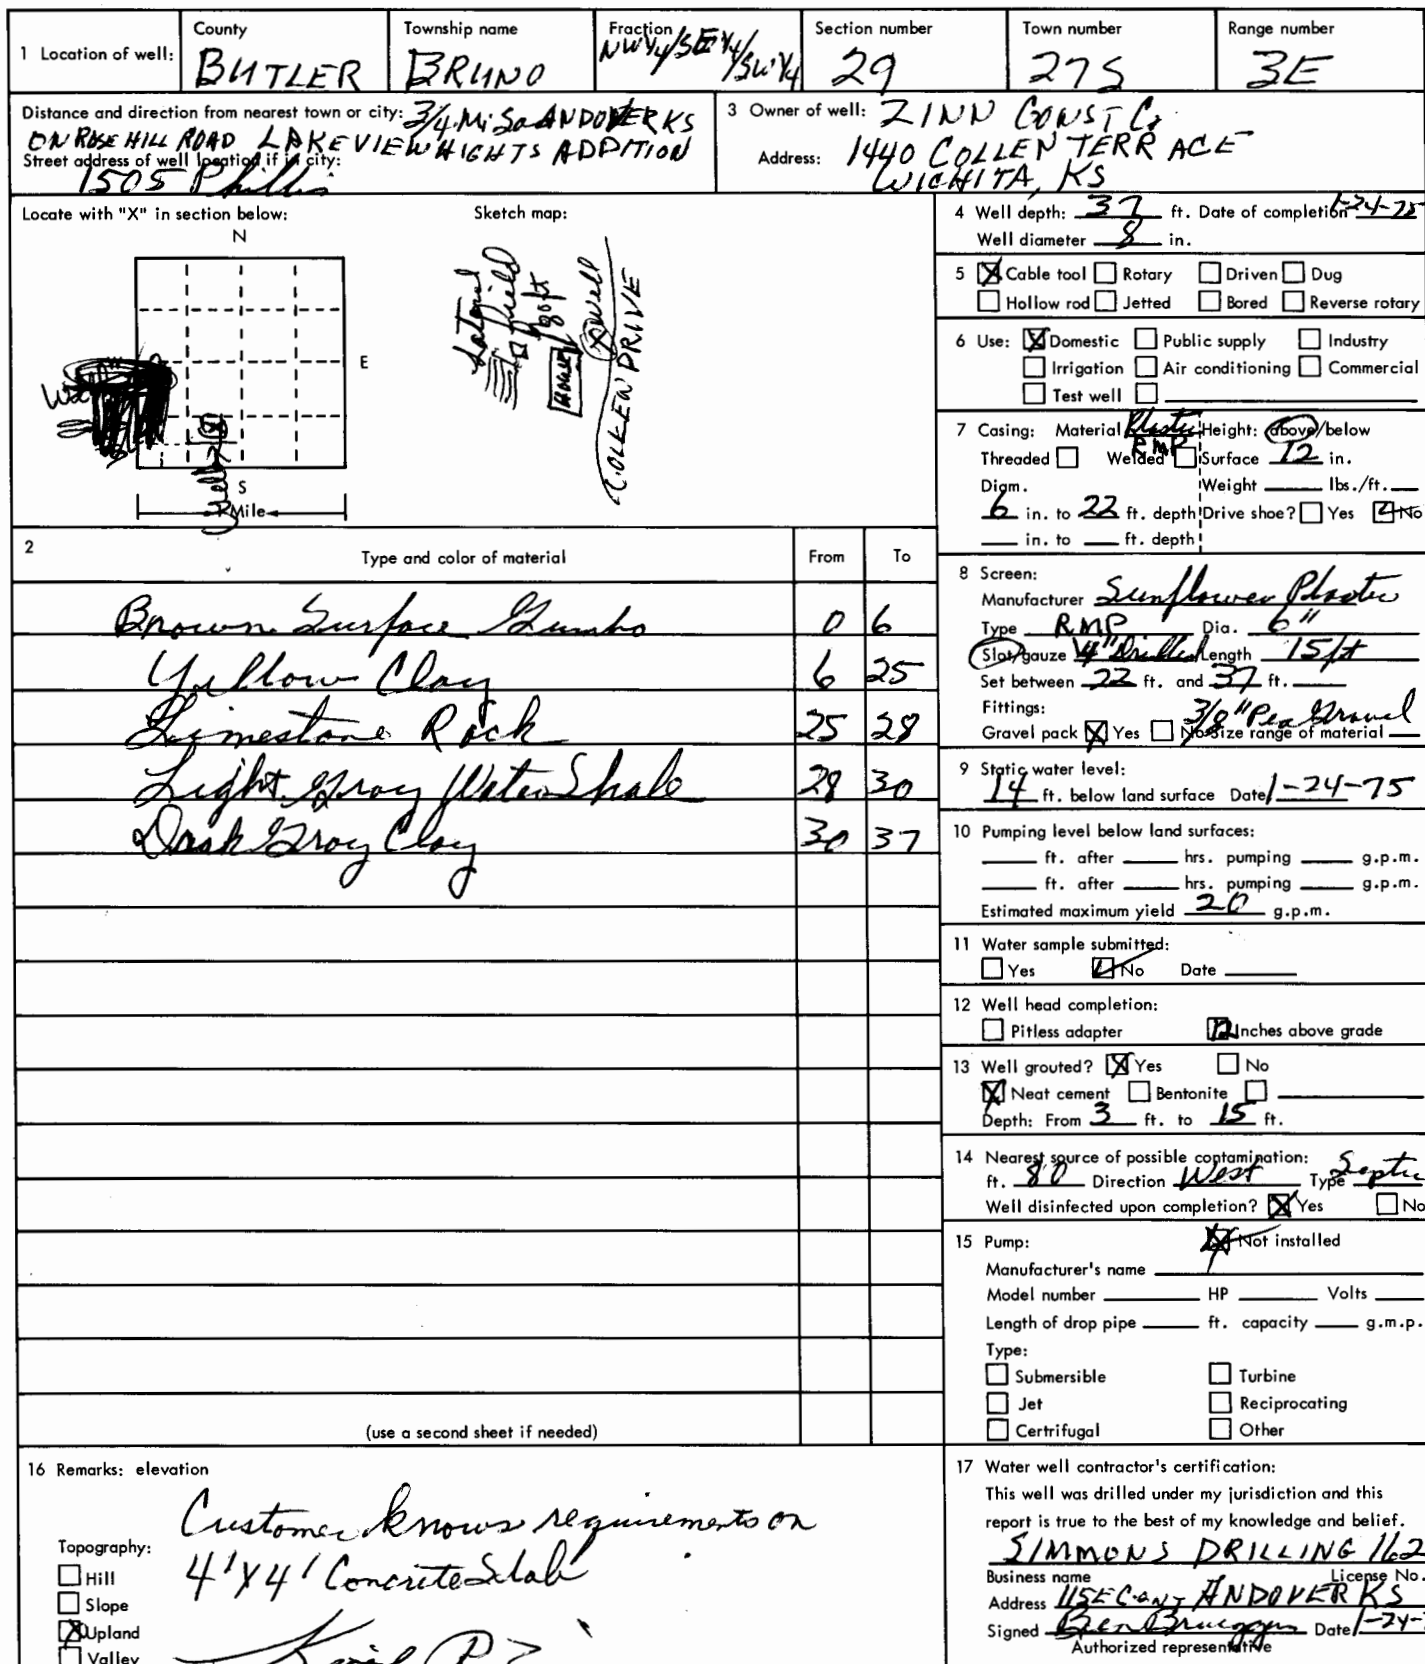 1 Location of well: County BUTLER Township name BRUNO Fraction NW 1/4/SE 1/4/SW 1/4 Section number 29 Town number 27S Range number 3E
Distance and direction from nearest town or city: 3/4 Mi So ANDOVER KS
ON ROSE HILL ROAD LAKEVIEW HIGHTS ADDITION
Street address of well location if in city:
1505 Phillis
3 Owner of well: ZINN CONST Co
Address: 1440 COLLEN TERRACE
WICHITA, KS
Locate with "X" in section below:
N
E
S
Mile
Well
Sketch map:
Lateral
Field
80 ft
House
X Well
COLLEEN DRIVE
4 Well depth: 37 ft. Date of completion 1-24-75
Well diameter 8 in.
5 X Cable tool Rotary Driven Dug
Hollow rod Jetted Bored Reverse rotary
6 Use: X Domestic Public supply Industry
Irrigation Air conditioning Commercial
Test well
7 Casing: Material Plastic Height: above/below
RMP
Threaded Welded Surface 12 in.
Diam. Weight lbs./ft.
6 in. to 22 ft. depth Drive shoe? Yes No
in. to ft. depth
2 Type and color of material From To
Brown Surface Gumbo 0 6
Yellow Clay 6 25
Limestone Rock 25 28
Light Gray Water Shale 28 30
Dark Gray Clay 30 37
(use a second sheet if needed)
8 Screen:
Manufacturer Sunflower Plastic
Type RMP Dia. 6"
Slot/gauze 1/4" Drilled Length 15 ft
Set between 22 ft. and 37 ft.
Fittings: 3/8" Pea Gravel
Gravel pack X Yes No Size range of material
9 Static water level:
14 ft. below land surface Date 1-24-75
10 Pumping level below land surfaces:
ft. after hrs. pumping g.p.m.
ft. after hrs. pumping g.p.m.
Estimated maximum yield 20 g.p.m.
11 Water sample submitted:
Yes No Date
12 Well head completion:
Pitless adapter 12 Inches above grade
13 Well grouted? X Yes No
X Neat cement Bentonite
Depth: From 3 ft. to 15 ft.
14 Nearest source of possible contamination:
ft. 80 Direction West Type Septic
Well disinfected upon completion? X Yes No
15 Pump: X Not installed
Manufacturer's name
Model number HP Volts
Length of drop pipe ft. capacity g.m.p.
Type:
Submersible Turbine
Jet Reciprocating
Certrifugal Other
16 Remarks: elevation
Customer knows requirements on
4'X4' Concrete Slab
Topography:
Hill
Slope
X Upland
Valley
17 Water well contractor's certification:
This well was drilled under my jurisdiction and this
report is true to the best of my knowledge and belief.
SIMMONS DRILLING 162
Business name License No.
Address ANDOVER KS
Signed Date 1-24-
Authorized representative